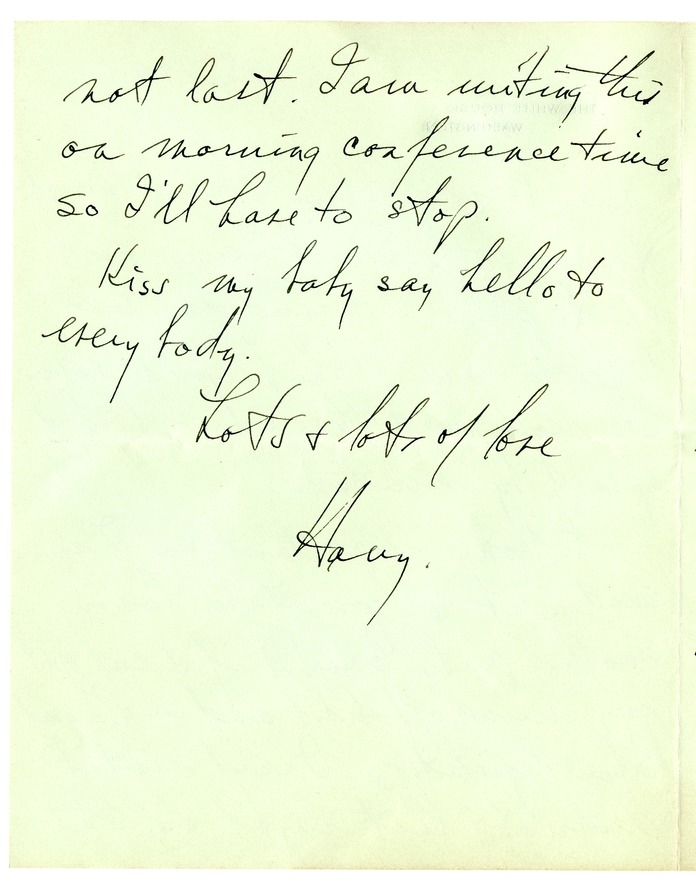 not last. I am writing this
on morning conference time
so I'll have to stop.
Kiss my baby say hello to
every body.
Lots & lots of love
Harry.
THE WHITE HOUSE
WASHINGTON